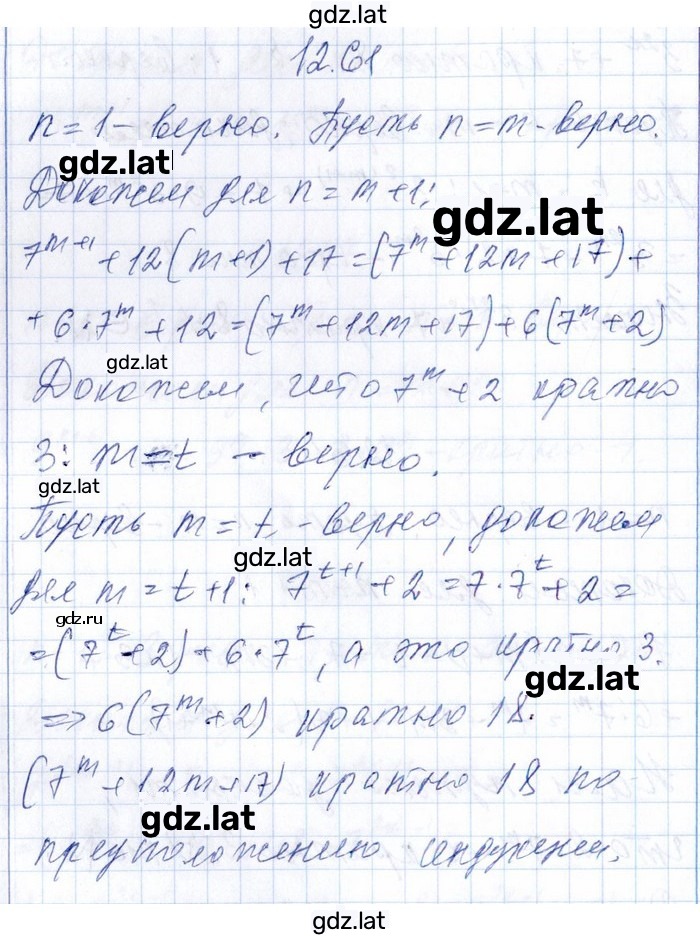 gdz.lat
12.61
n = 1 - верно. Пусть n = m - верно.
gdz.lat
Докажем для n = m + 1:
gdz.lat
7^{m+1} + 12(m+1) + 17 = (7^m + 12m + 17) +
+ 6·7^m + 12 = (7^m + 12m + 17) + 6(7^m + 2)
gdz.lat
Докажем, что 7^m + 2 кратно
3: m = t - верно.
gdz.lat
Пусть m = t - верно, докажем
gdz.lat
для m = t + 1: 7^{t+1} + 2 = 7·7^t + 2 =
gdz.ru
= (7^t + 2) + 6·7^t, а это кратно 3.
gdz.lat
=> 6(7^m + 2) кратно 18.
(7^m + 12m + 17) кратно 18 по
gdz.lat
предположению индукции.
gdz.lat